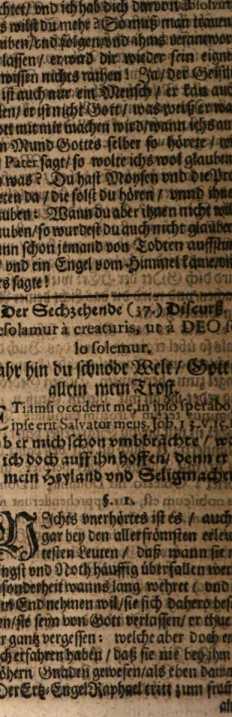 chtet/ und ich hab dich darvon
s wilst du mehr? So muß man trauen
auben/ und folgen/ und
lassen/ er wird dir wieder sein eigne
wissen nichts rathen! Ja/ der Geistli
ist auch nur ein Mensch/ er kan auch
len/ er ist nicht Gott/ was weiß er wa
ott mit mir machen wird/ wann ichs au
n Mund Gottes selber so hörete/ w
Pater sagt/ so wolte ichs wol glauben
was? Du hast Moysen und die Pro
eten da/ die solst du hören/ unnd ihne
uben: Wann du aber ihnen nicht wil
uben/ so wurdest du auch nicht glaube
nn schon jemand von Todten auffstu
und ein Engel vom Himmel käme/
s sagte!
Der Sechzehende (37.) Discurs.
esolamur à creaturis, ut à DEO
lo solemur.
ahr hin du schnöde Welt/ Gott
allein mein Trost.
Tiamsi occiderit me, in ipso sperabo
ipse erit Salvator meus. Job. 13. v. 15.
b er mich schon umbbrächte/ w
ich doch auff ihn hoffen/ denn er
mein Heyland und Seligmacher
§. 1.
Nichts unerhörtes ist es/ auch
gar bey den allerfrömsten
Leuten/ daß wann sie
ngst und Noth häuffig überfallen wer
sonderheit wanns lang wehret/ und
n End nehmen wil/ sie sich dahero
en/ sie seyn von Gott verlassen/ er
er gantz vergessen: welche aber doch
ch erfahren haben/ daß sie nie bey ihm
öhern Gnaden gewesen/ als eben dama
Der Ertz-Engel Raphael tritt zum